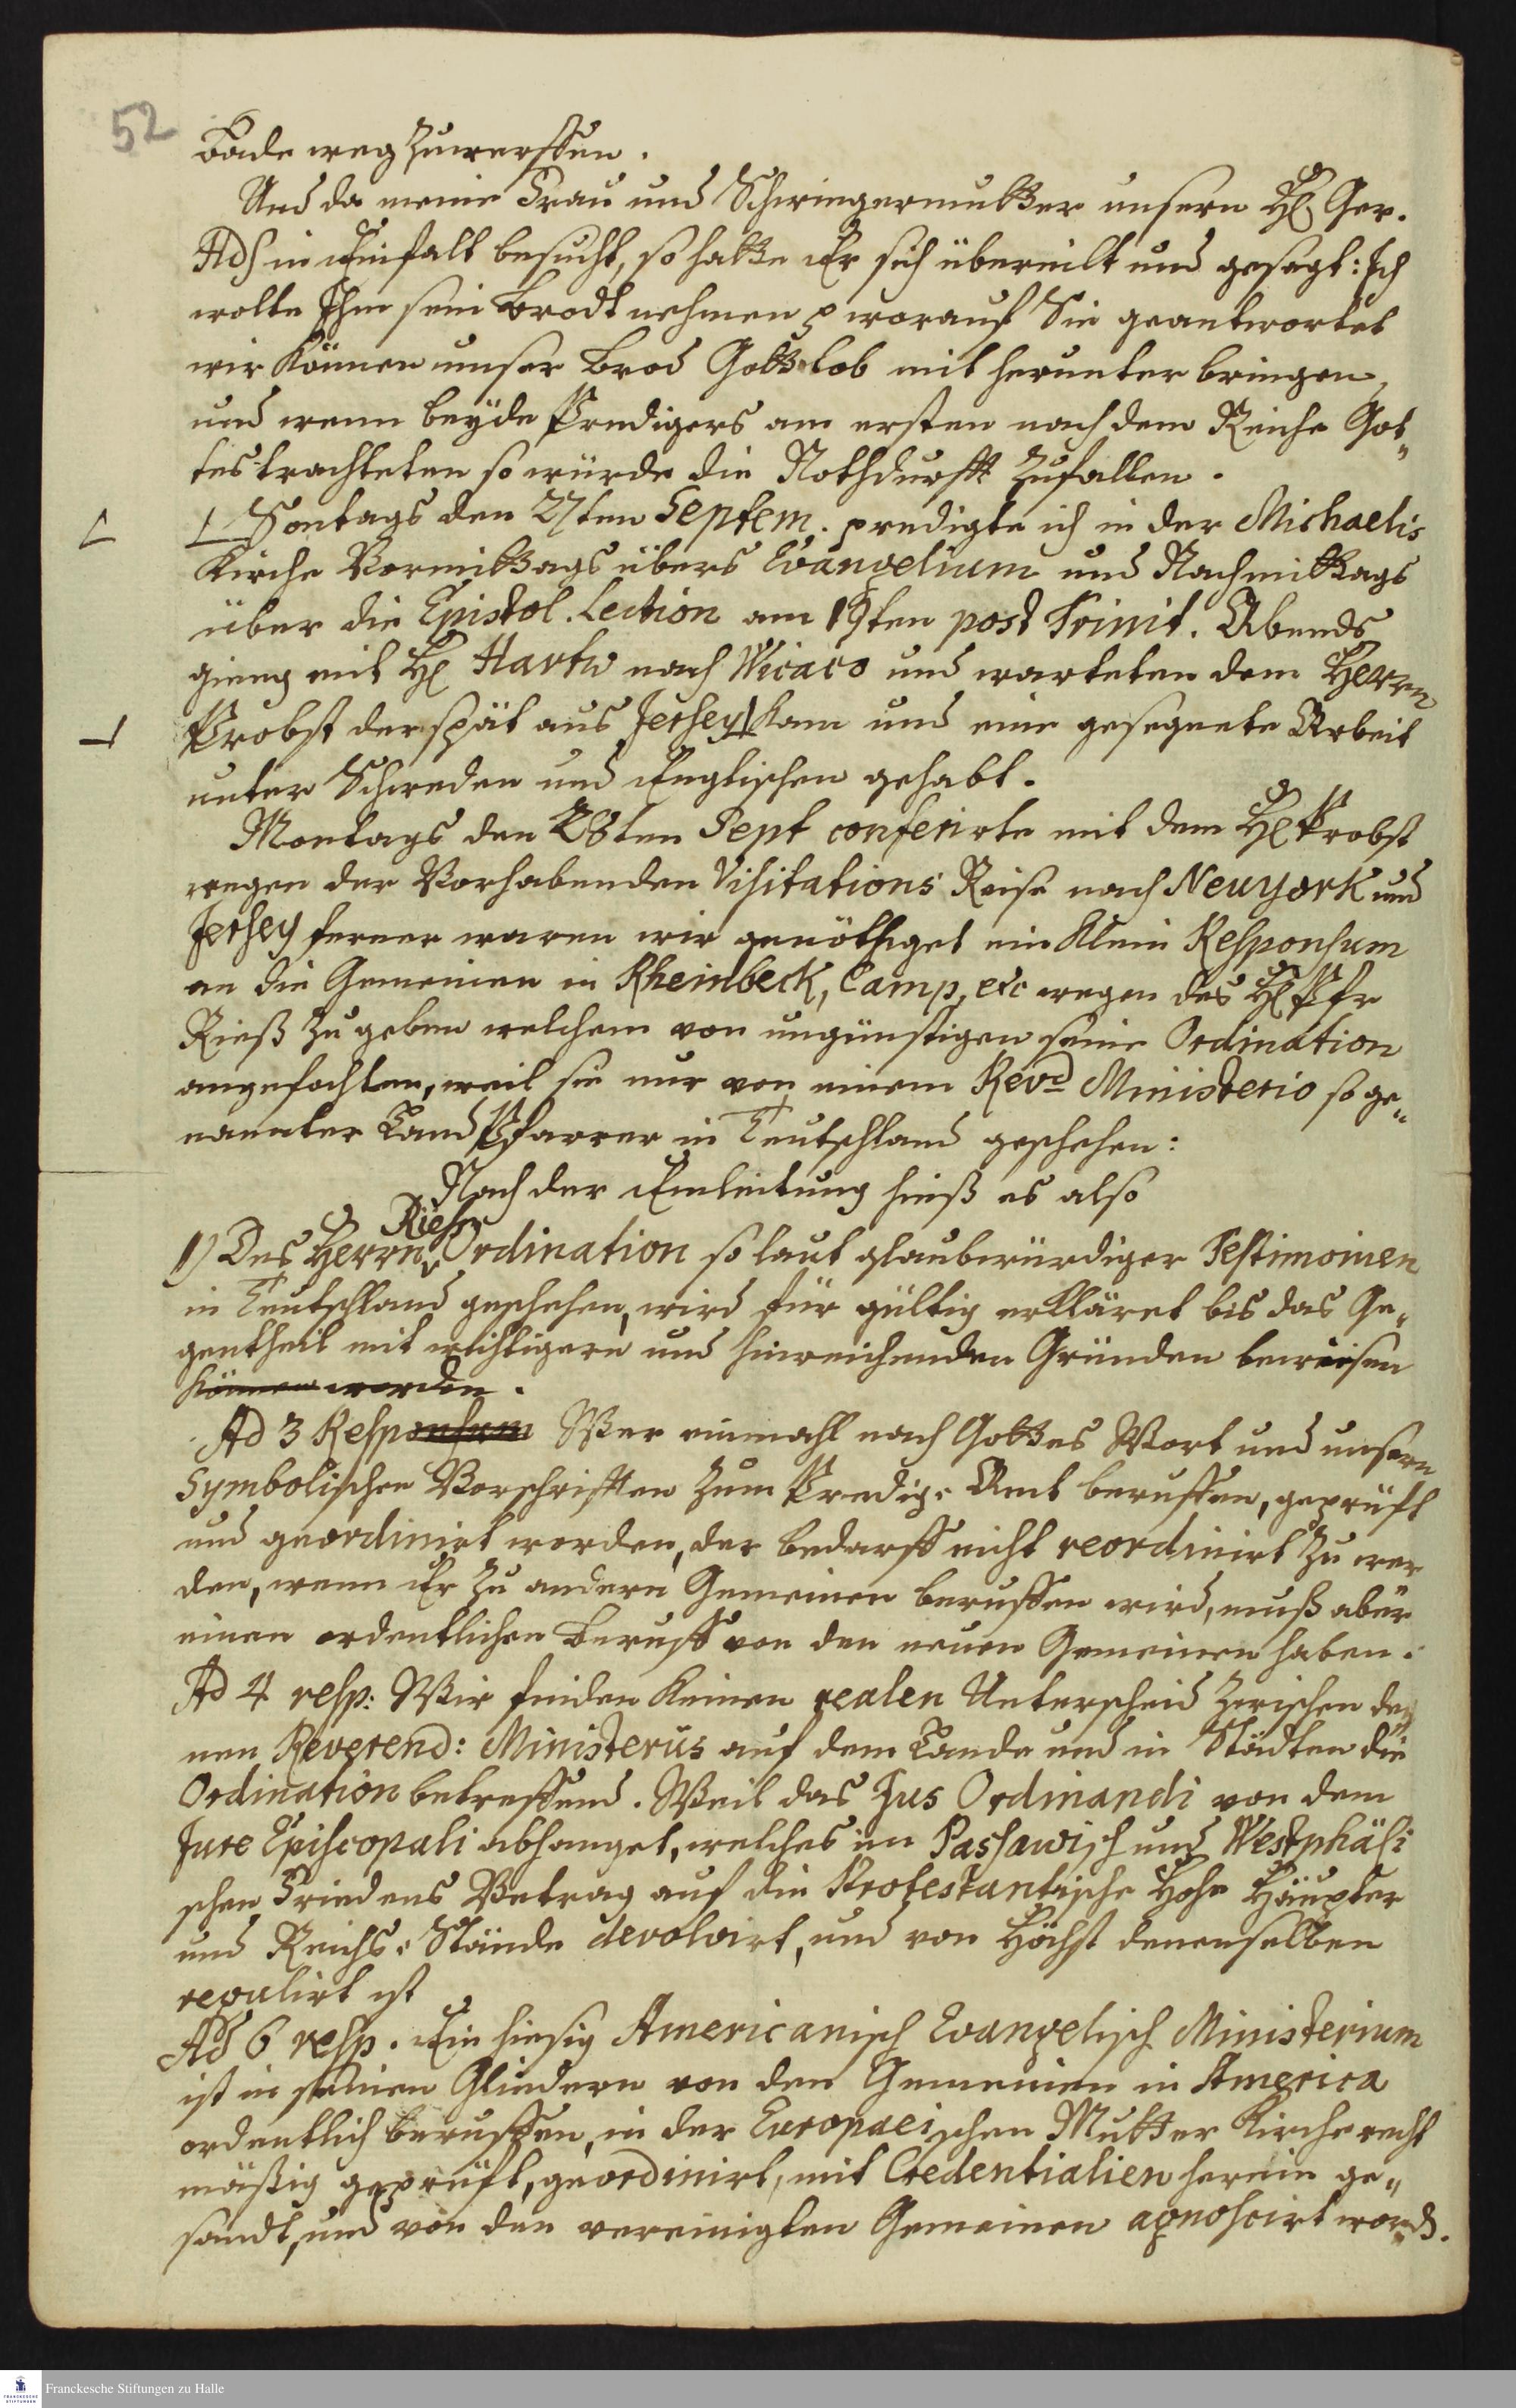 52
Bade weg zuwerffen.
Und da meine Frau und Schwiegermutter unsern H. Ger.
Adh in Einfalt besucht, so hatte Er sich übereilt und gesagt: Ich
wolte Ihm sein Brodt nehmen p worauf Sie geantwortet
wir können unser Brod Gottlob mit herunter bringen,
und wenn beyde Predigers am ersten nach dem Reiche Got„
tes trachteten so würde die Nothdurfft zufallen.
Sontags den 27ten Septem. predigte ich in der Michaelis
Kirche Vormittags übers Evangelium und Nachmittags
über die Epistol. Lection am 19ten post Trinit. Abends
gieng mit H. Hartw nach Wicaco und warteten dem Herrn
Probst der spät aus Jersey kam und eine gesegnete Arbeit
unter Schweden und Englischen gehabt.
Montags den 28ten Sept conferirte mit dem H. Probst
wegen der Vorhabenden Visitations Reise nach Neuyork und
Jersey ferner waren wir genöthiget ein klein Responsum
an die Gemeinen in Rheinbeck, Camp, etc wegen des H. Pfr
Rieß zu geben welchem von ungünstigen seine Ordination
angefochten, weil sie nur von einem Revd Ministerio so ge„
nannter Land Pfarrer in Teutschland geschehen:
Nach der Einleitung hieß es also
1) Des Herrn Rieß Ordination so laut glaubwürdiger Testimonien
in Teutschland geschehen, wird für gültig erkläret bis das Ge„
gentheil mit wichtigern und hinreichenden Gründen bewiesen
können worden.
Ad 3 Responsum Wer einmahl nach Gottes Wort und unsern
Symbolischen Vorschrifften zum Predig. Amt beruffen, geprüft
und geordinirt worden, der bedarff nicht reordinirt zu wer
den, wenn Er zu andern Gemeinen beruffen wird, muß aber
einen ordentlichen Beruff von den neuen Gemeinen haben.
Ad 4 resp: Wir finden keinen realen Unterscheid zwischen de„
nen Reverend: Ministeriis auf dem Lande und in Städten die
Ordination betreffend. Weil das Jus Ordinandi von dem
Jure Episcopali abhanget, welches im Passawisch und Westphäli
schen Friedens Vertrag auf die Protestantische Hohe Häupter
und Reichs: Stände devolvirt, und von Höchst denenselben
regulirt ist
Ad 6 resp. Ein hiesig Americanisch Evangelisch Ministerium
ist in seinen Gliedern von den Gemeinen in America
ordentlich beruffen, in der Europaeischen Mutter Kirche recht
mäßig geprüft, geordinirt, mit Credentialien herein ge„
sandt, und von den vereinigten Gemeinen agnoscirt word.
Franckesche Stiftungen zu Halle